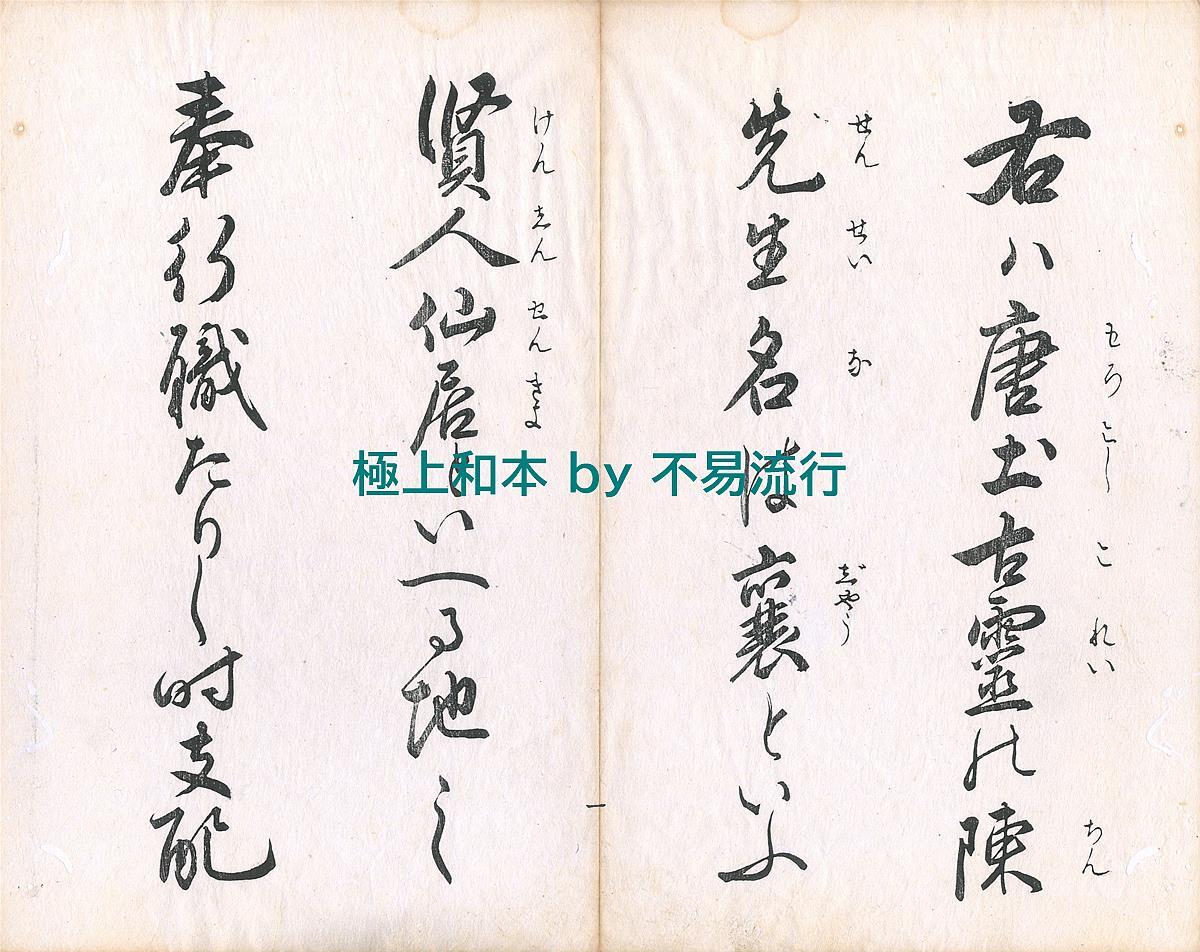 右ハ唐土古靈の陳
もろこし
これい
ちん
先生名は襄といふ
せんせいな
じやう
賢人仙居といへる地の
けんじんせんきよ
奉行職たりし時支配
極上和本 by 不易流行
一